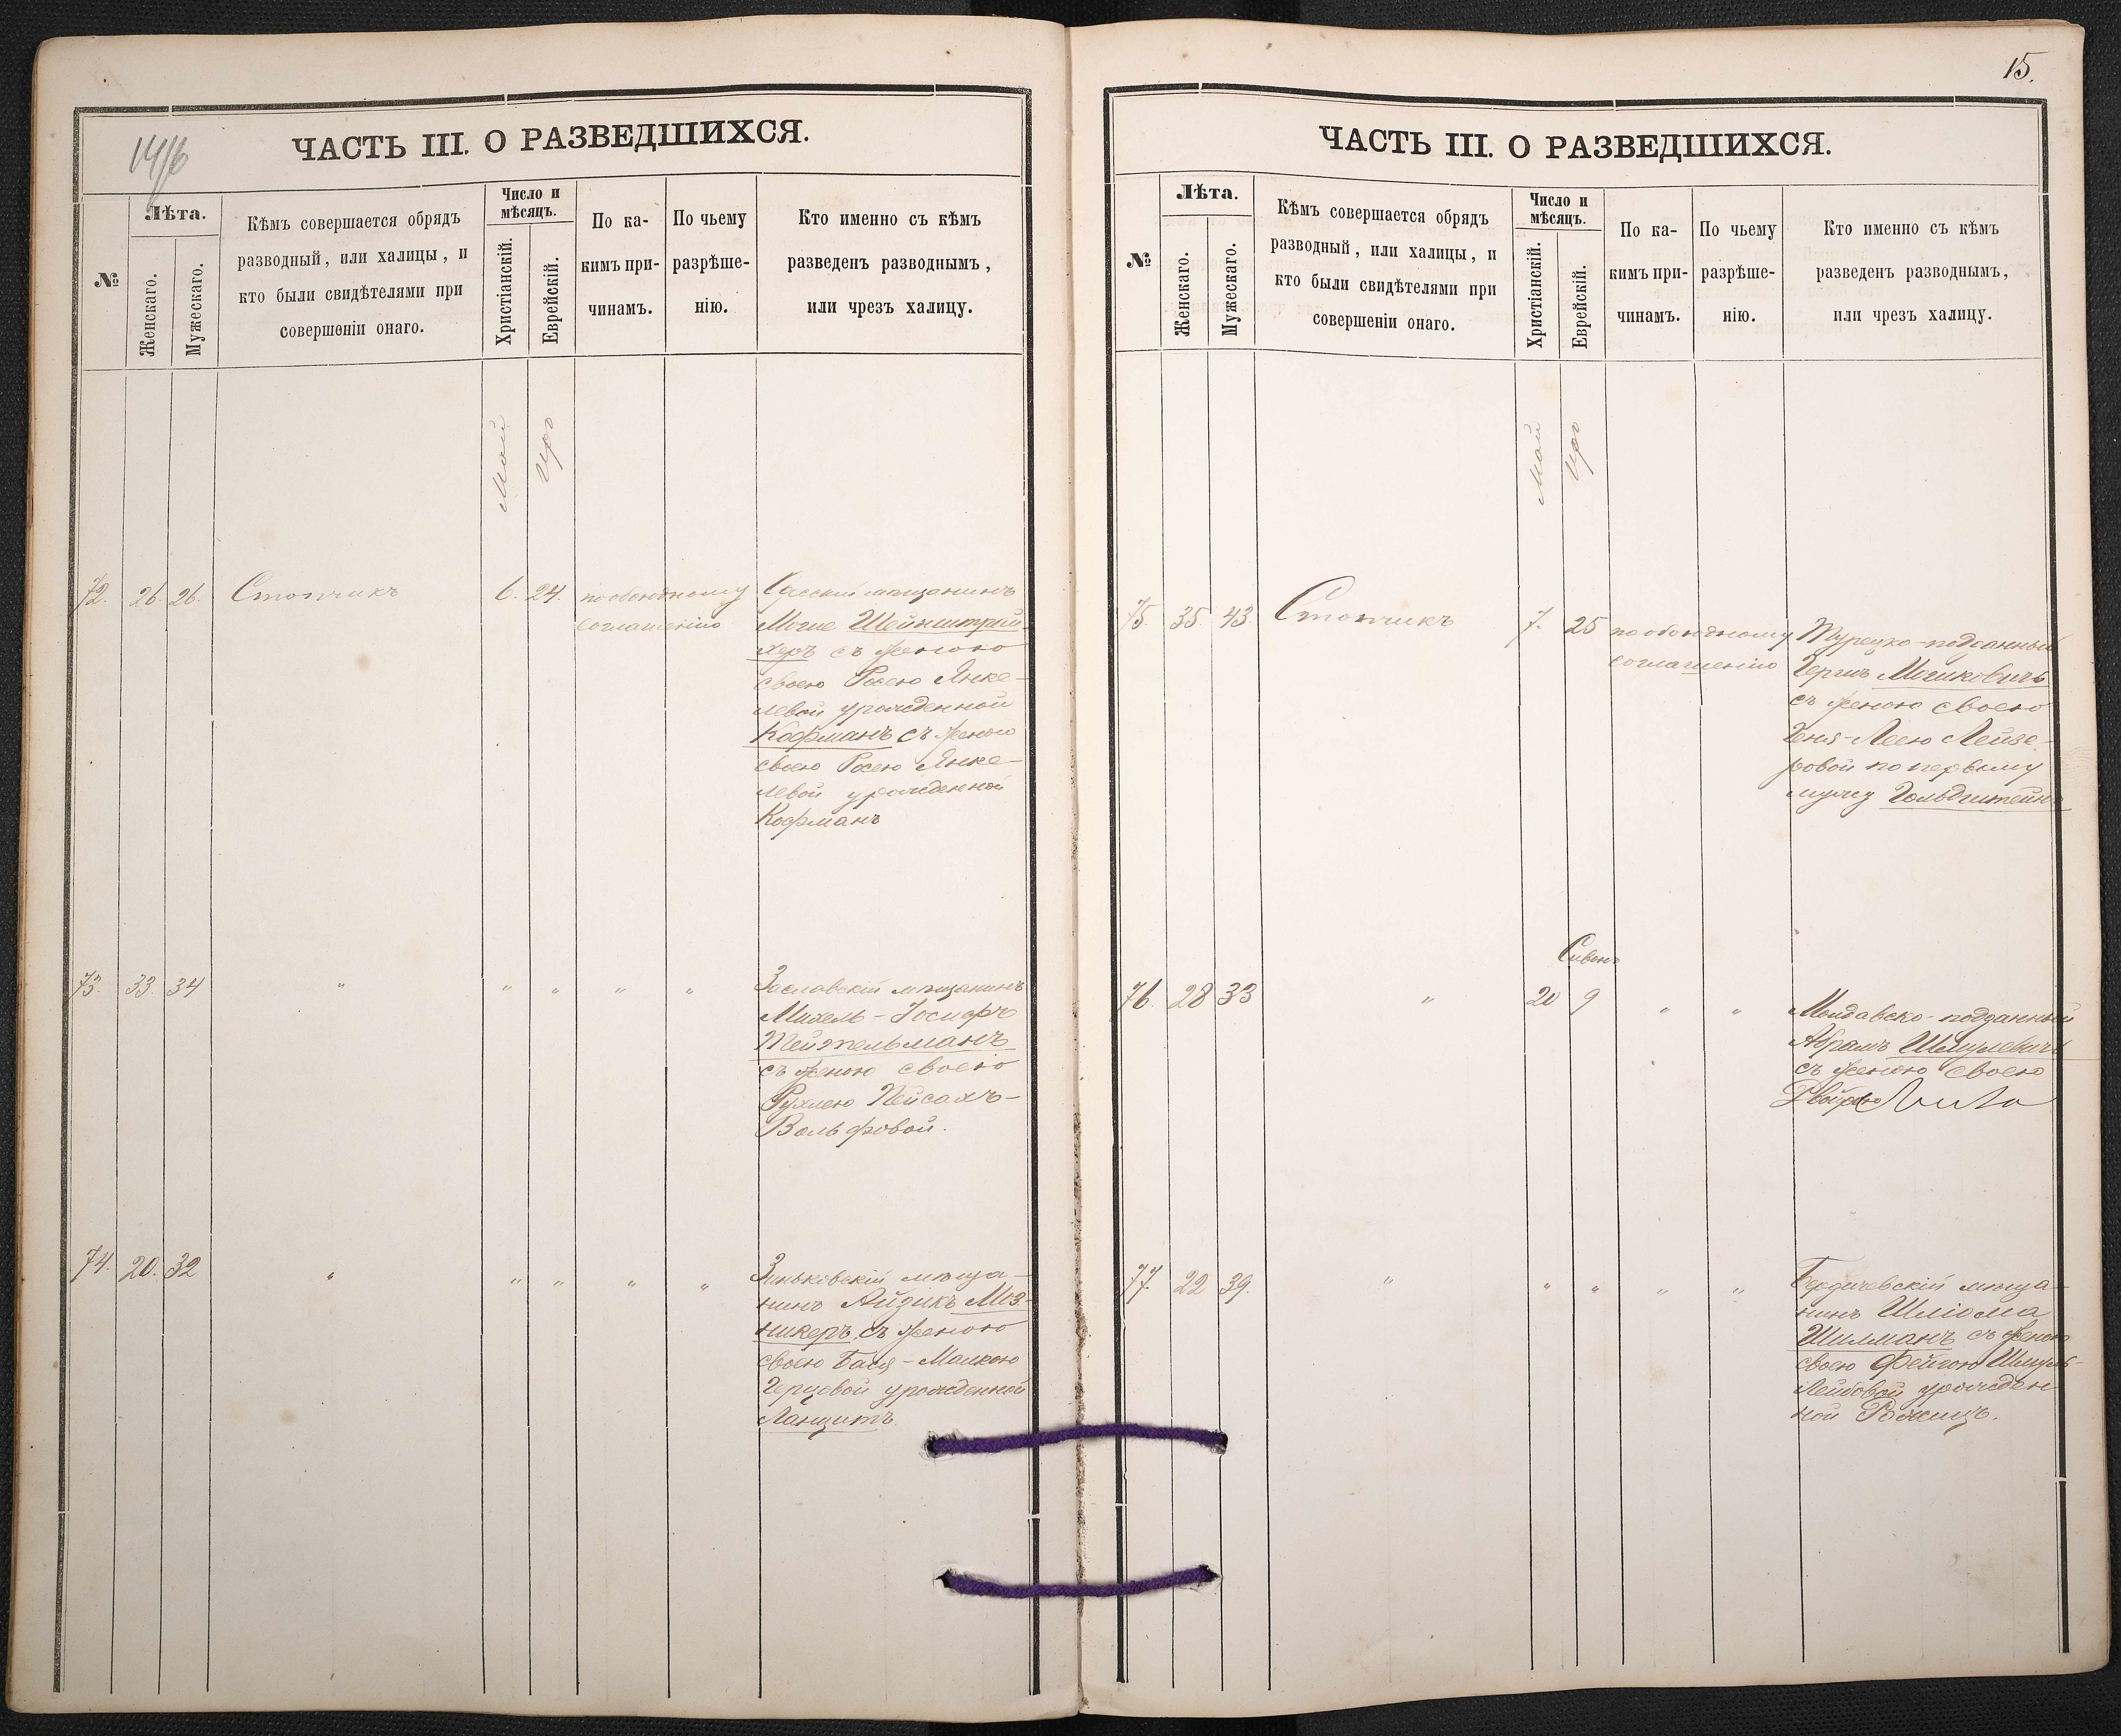 14/6
ЧАСТЬ III. О РАЗВЕДШИХСЯ.
№
Лѣта.
Женскаго.
Мужескаго.
Кѣмъ совершается обрядъ
разводный, или халицы, и
кто были свидѣтелями при
совершеніи онаго.
Число и
мѣсяцъ.
Христіанскій.
Еврейскій.
По ка-
кимъ при-
чинамъ.
По чьему
разрѣше-
нію.
Кто именно съ кѣмъ
разведенъ разводнымъ,
или чрезъ халицу.
Май
Иро
72. 26. 26. Стопчикъ 6. 24. по обоюдному
соглашенію
Одесскій мѣщанинъ
Мошe Шейнштрей-
херъ съ женою
своею Росею Янке-
левой урожденной
Кофманъ съ женою
своею Росею Янке-
левой урожденной
Кофманъ
73. 33. 34 " " " " "
Заславскій мѣщанинъ
Михель-Іосифъ
Тейтельманъ
съ женою своею
Рухлею Пейсахъ-
Вольфовой.
74. 20. 32 " " " " "
Зиньковскій мѣща-
нинъ Айзикъ Моз-
никеръ съ женою
своею Бася-Малкою
Герцовой урожденной
Ланцитъ
15.
ЧАСТЬ III. О РАЗВЕДШИХСЯ.
№
Лѣта.
Женскаго.
Мужескаго.
Кѣмъ совершается обрядъ
разводный, или халицы, и
кто были свидѣтелями при
совершеніи онаго.
Число и
мѣсяцъ.
Христіанскій.
Еврейскій.
По ка-
кимъ при-
чинамъ.
По чьему
разрѣше-
нію.
Кто именно съ кѣмъ
разведенъ разводнымъ,
или чрезъ халицу.
Май
Иро
75. 35. 43. Стопчикъ 7. 25 по обоюдному
соглашенію
Турецко-подданный
Гершъ Мошковичъ
съ женою своею
Геня-Леею Лейзе-
ровой по первому
мужу Гольдштейнъ
Сивонъ
76. 28 33 " 20 9 " "
Молдавско-подданный
Абрамъ Шмулевичъ
съ женою своею
Двойрою
77. 22 39. " " " " "
Бердичевскій мѣща-
нинъ Шліома
Шилманъ съ женою
своею Фейгою Шмуль-
Лейбовой урожден-
ной